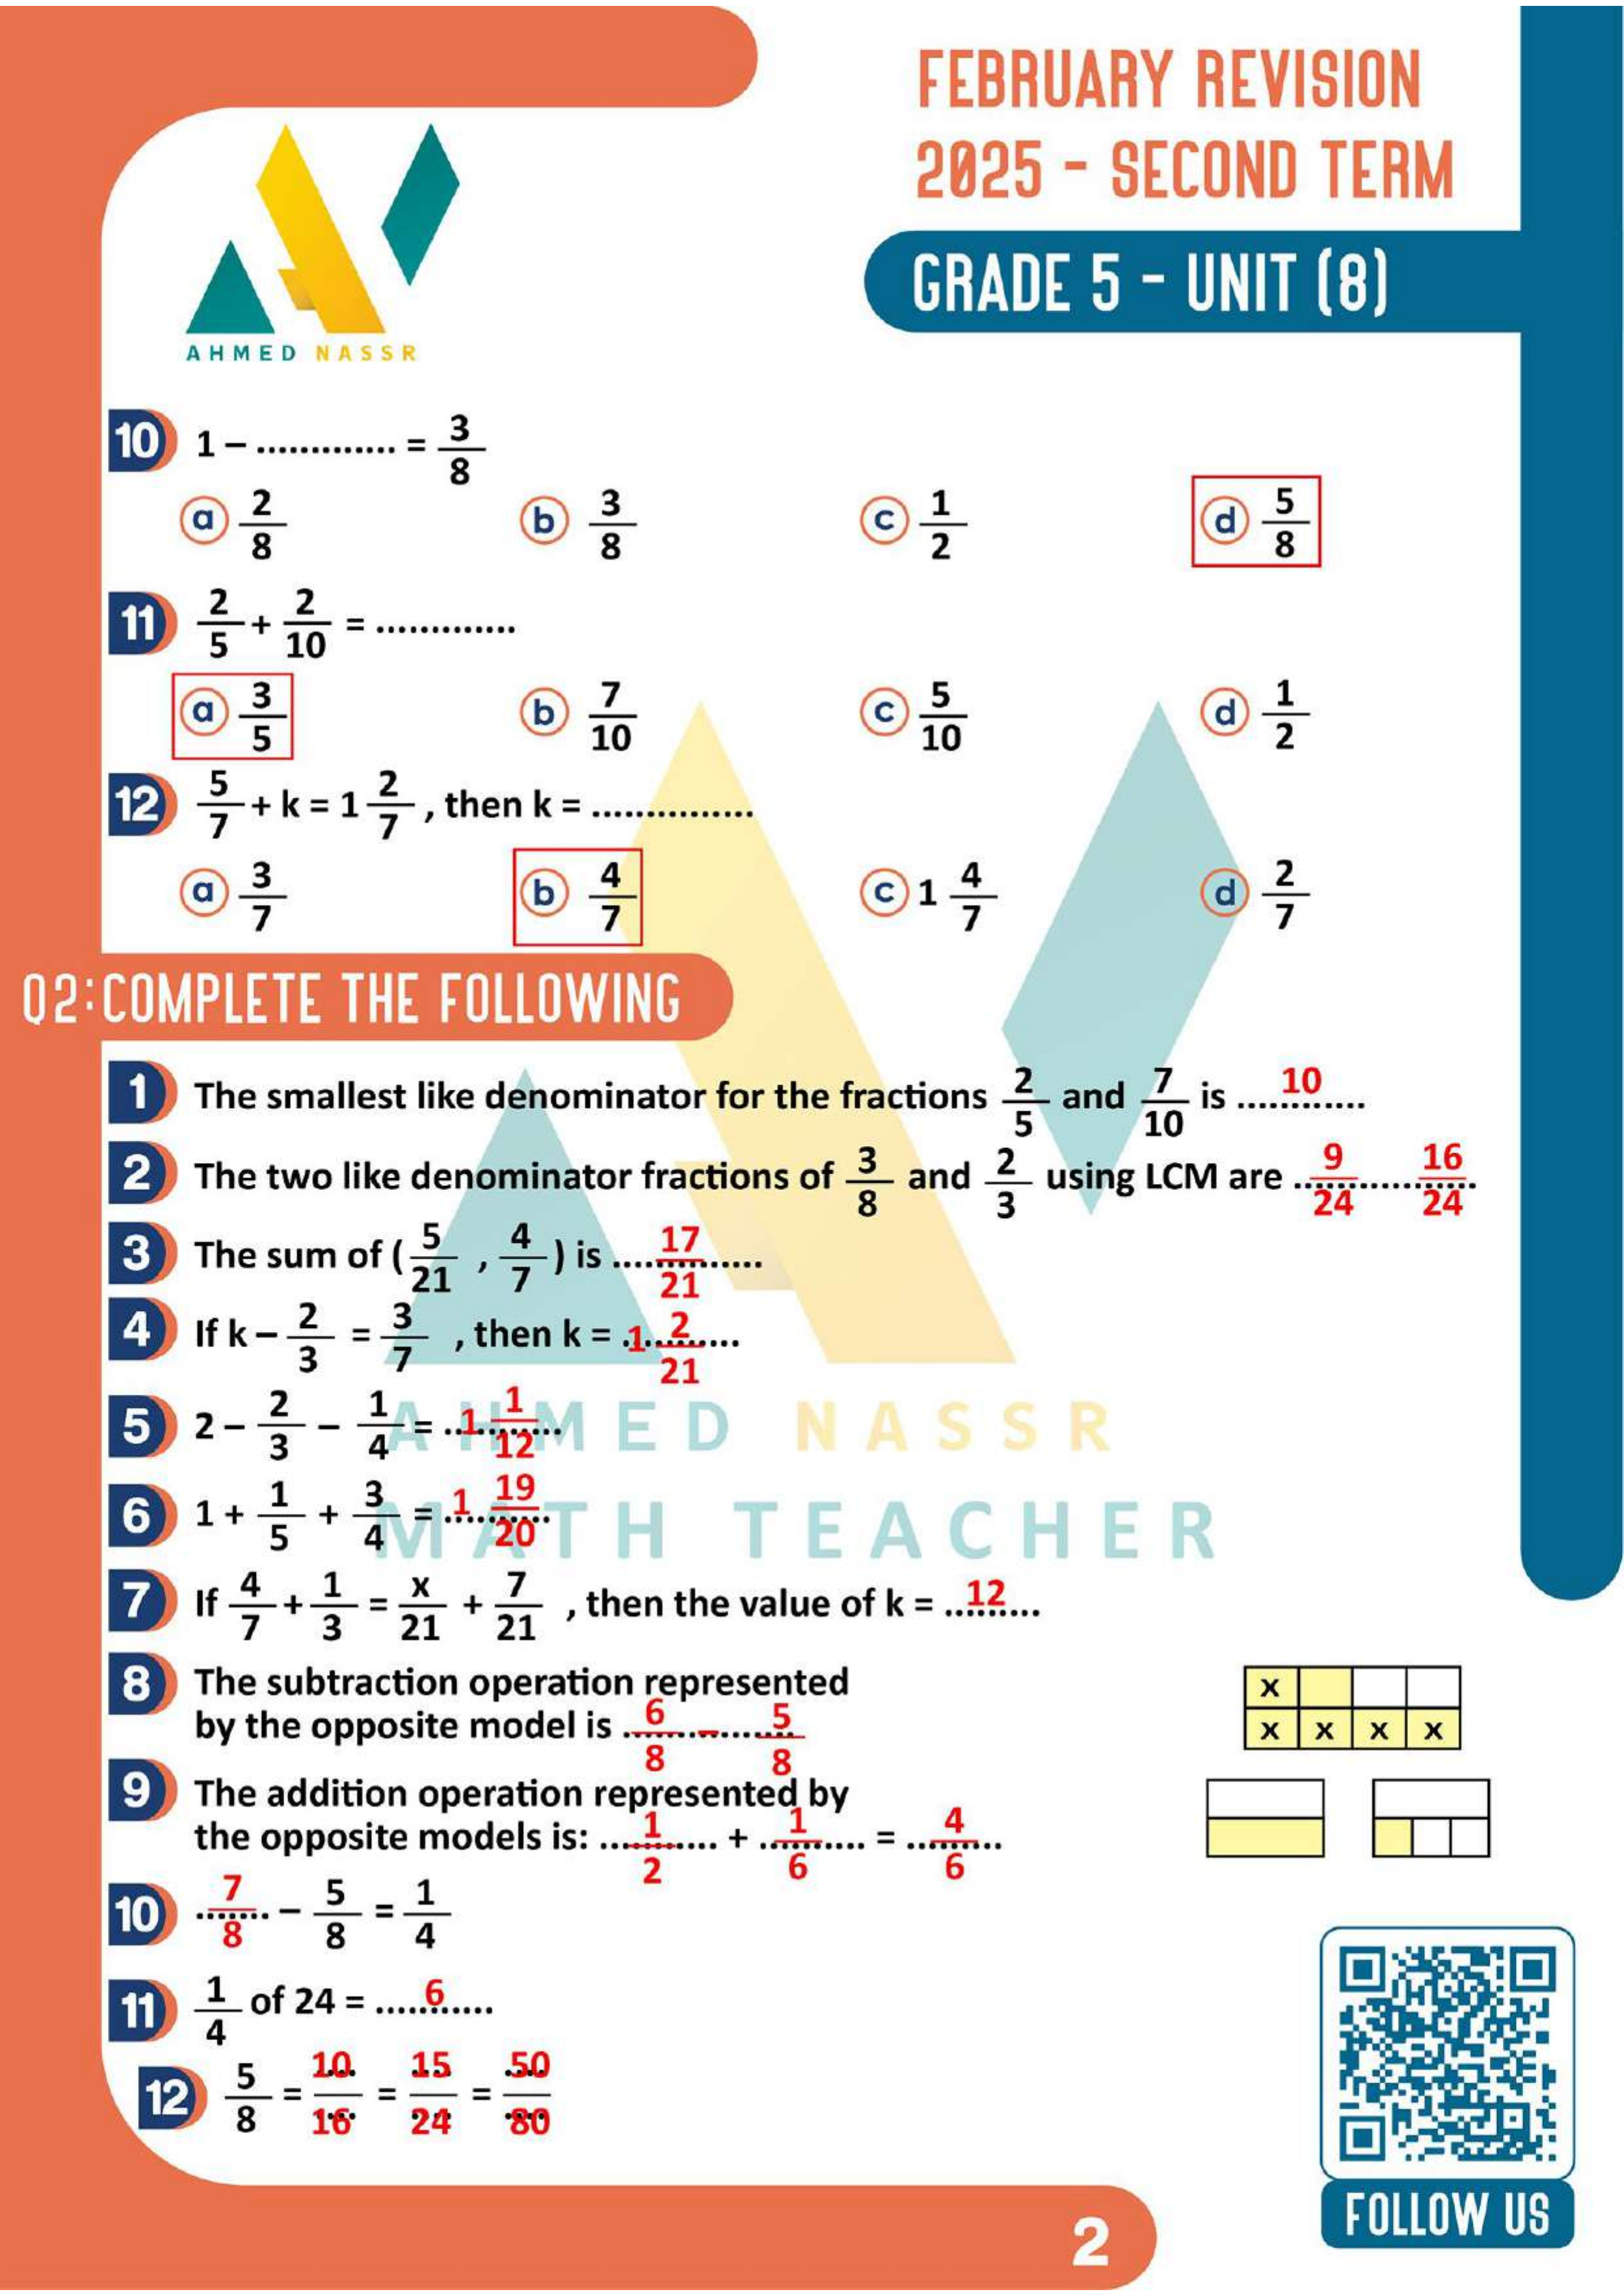 FEBRUARY REVISION
2025 - SECOND TERM
GRADE 5 - UNIT (8)
AHMED NASSR
10 1 – ............. = 3/8
a 2/8 b 3/8 c 1/2 d 5/8
11 2/5 + 2/10 = .............
a 3/5 b 7/10 c 5/10 d 1/2
12 5/7 + k = 1 2/7 , then k = ...............
a 3/7 b 4/7 c 1 4/7 d 2/7
Q2:COMPLETE THE FOLLOWING
1 The smallest like denominator for the fractions 2/5 and 7/10 is ....10....
2 The two like denominator fractions of 3/8 and 2/3 using LCM are ..9/24.....16/24
3 The sum of ( 5/21 , 4/7 ) is ....17/21......
4 If k – 2/3 = 3/7 , then k = .1..2/21.....
5 2 – 2/3 – 1/4 = ..1..1/12..
AHMED NASSR
6 1 + 1/5 + 3/4 = ..1..19/20.
MATH TEACHER
7 If 4/7 + 1/3 = x/21 + 7/21 , then the value of k = ..12...
8 The subtraction operation represented
by the opposite model is ..6/8....–....5/8
x
x x x x
9 The addition operation represented by
the opposite models is: ....1/2.... + ...1/6..... = ...4/6...
10 ..7/8.. – 5/8 = 1/4
11 1/4 of 24 = ....6.....
12 5/8 = 10/16 = 15/24 = 50/80
FOLLOW US
2